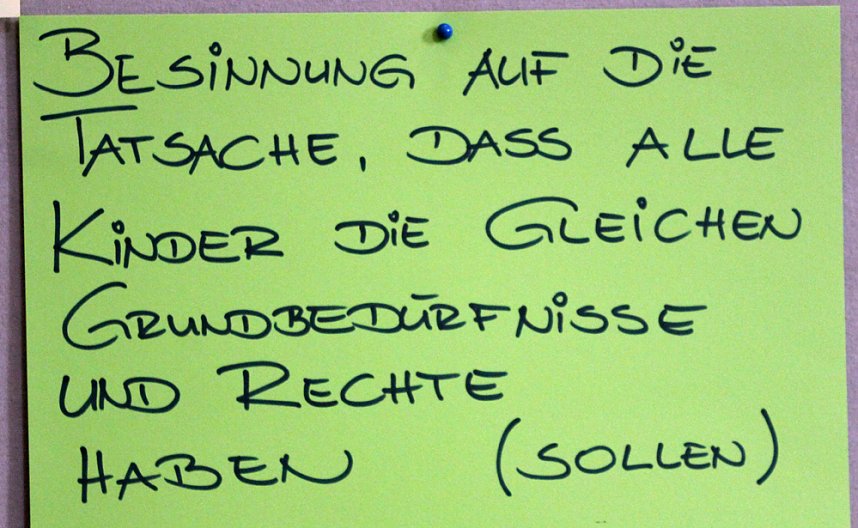 BESINNUNG AUF DIE
TATSACHE, DASS ALLE
KINDER DIE GLEICHEN
GRUNDBEDÜRFNISSE
UND RECHTE
HABEN (SOLLEN)